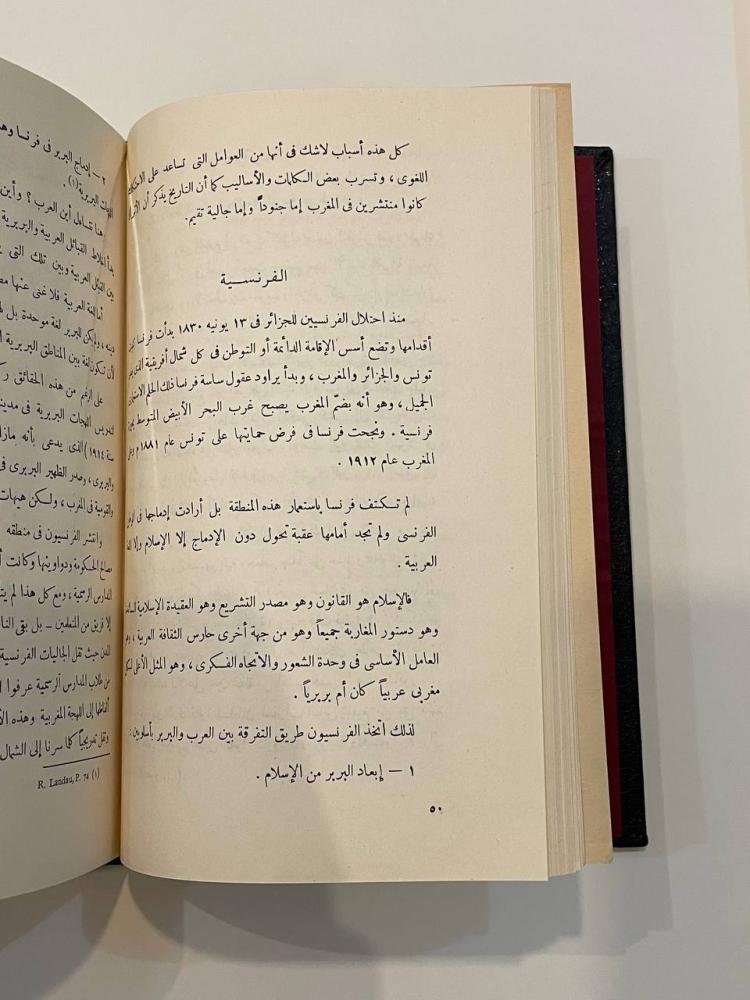 كل هذه أسباب لاشك فى أنها من العوامل التى تساعد على
اللغوى ، وتسرب بعض الكلمات والأساليب كما أن التاريخ يذكر أن
كانوا منتشرين فى المغرب إما جنوداً وإما جالية تقيم.
الفرنسية
منذ احتلال الفرنسيين للجزائر فى ١٣ يونيه ١٨٣٠ بدأت فرنسا
أقدامها وتضع أسس الإقامة الدائمة أو التوطن فى كل شمال أفريقية
تونس والجزائر والمغرب ، وبدأ يراود عقول ساسة فرنسا ذلك الحلم
الجميل ، وهو أنه بضم المغرب يصبح غرب البحر الأبيض المتوسط
فرنسية . ونجحت فرنسا فى فرض حمايتها على تونس عام ١٨٨١م
المغرب عام ١٩١٢ .
لم تكتف فرنسا باستعمار هذه المنطقة بل أرادت إدماجها فى
الفرنسى ولم تجد أمامها عقبة تحول دون الإدماج إلا الإسلام وإلا
العربية .
فالإسلام هو القانون وهو مصدر التشريع وهو العقيدة الإسلامية
وهو دستور المغاربة جميعاً وهو من جهة أخرى حارس الثقافة العربية ،
العامل الأساسى فى وحدة الشعور والاتجاه الفكرى ، وهو المثل الأعلى
مغربى عربياً كان أم بربرياً .
لذلك اتخذ الفرنسيون طريق التفرقة بين العرب والبربر بأسلوبين :
١ — إبعاد البربر من الإسلام .
٥٠
٢ — إدماج البربر فى فرنسا
البربرية (١) .
هنا نتساءل أين العرب ؟ وأين
القبائل العربية والبربرية
بين القبائل العربية وبين تلك التى
أما اللغة العربية فلا غنى عنها
دينه ، ولم يكن للبربر لغة موحدة بل
لأن تكون لغة بين المناطق البربرية
على الرغم من هذه الحقائق
لتدريس اللهجات البربرية فى
سنة ١٩١٤) الذى يدعى بأنه
والبربرى ، وصدر الظهير البربرى فى
والقومية فى المغرب ، ولكن هيهات
وانتشر الفرنسيون فى منطقة
مصالح الحكومة ودواوينها وكانت
المدارس الرسمية ، ومع كل هذا لم
إلا فريق من المتعلمين — بل بقى
المدن حيث تقل الجاليات الفرنسية
من طلاب المدارس الرسمية عرفوا
ألفاظها إلى اللهجة المغربية وهذه
وتقل تدريجياً كلما سرنا إلى الشمال
(١) R. Landau, P. 74